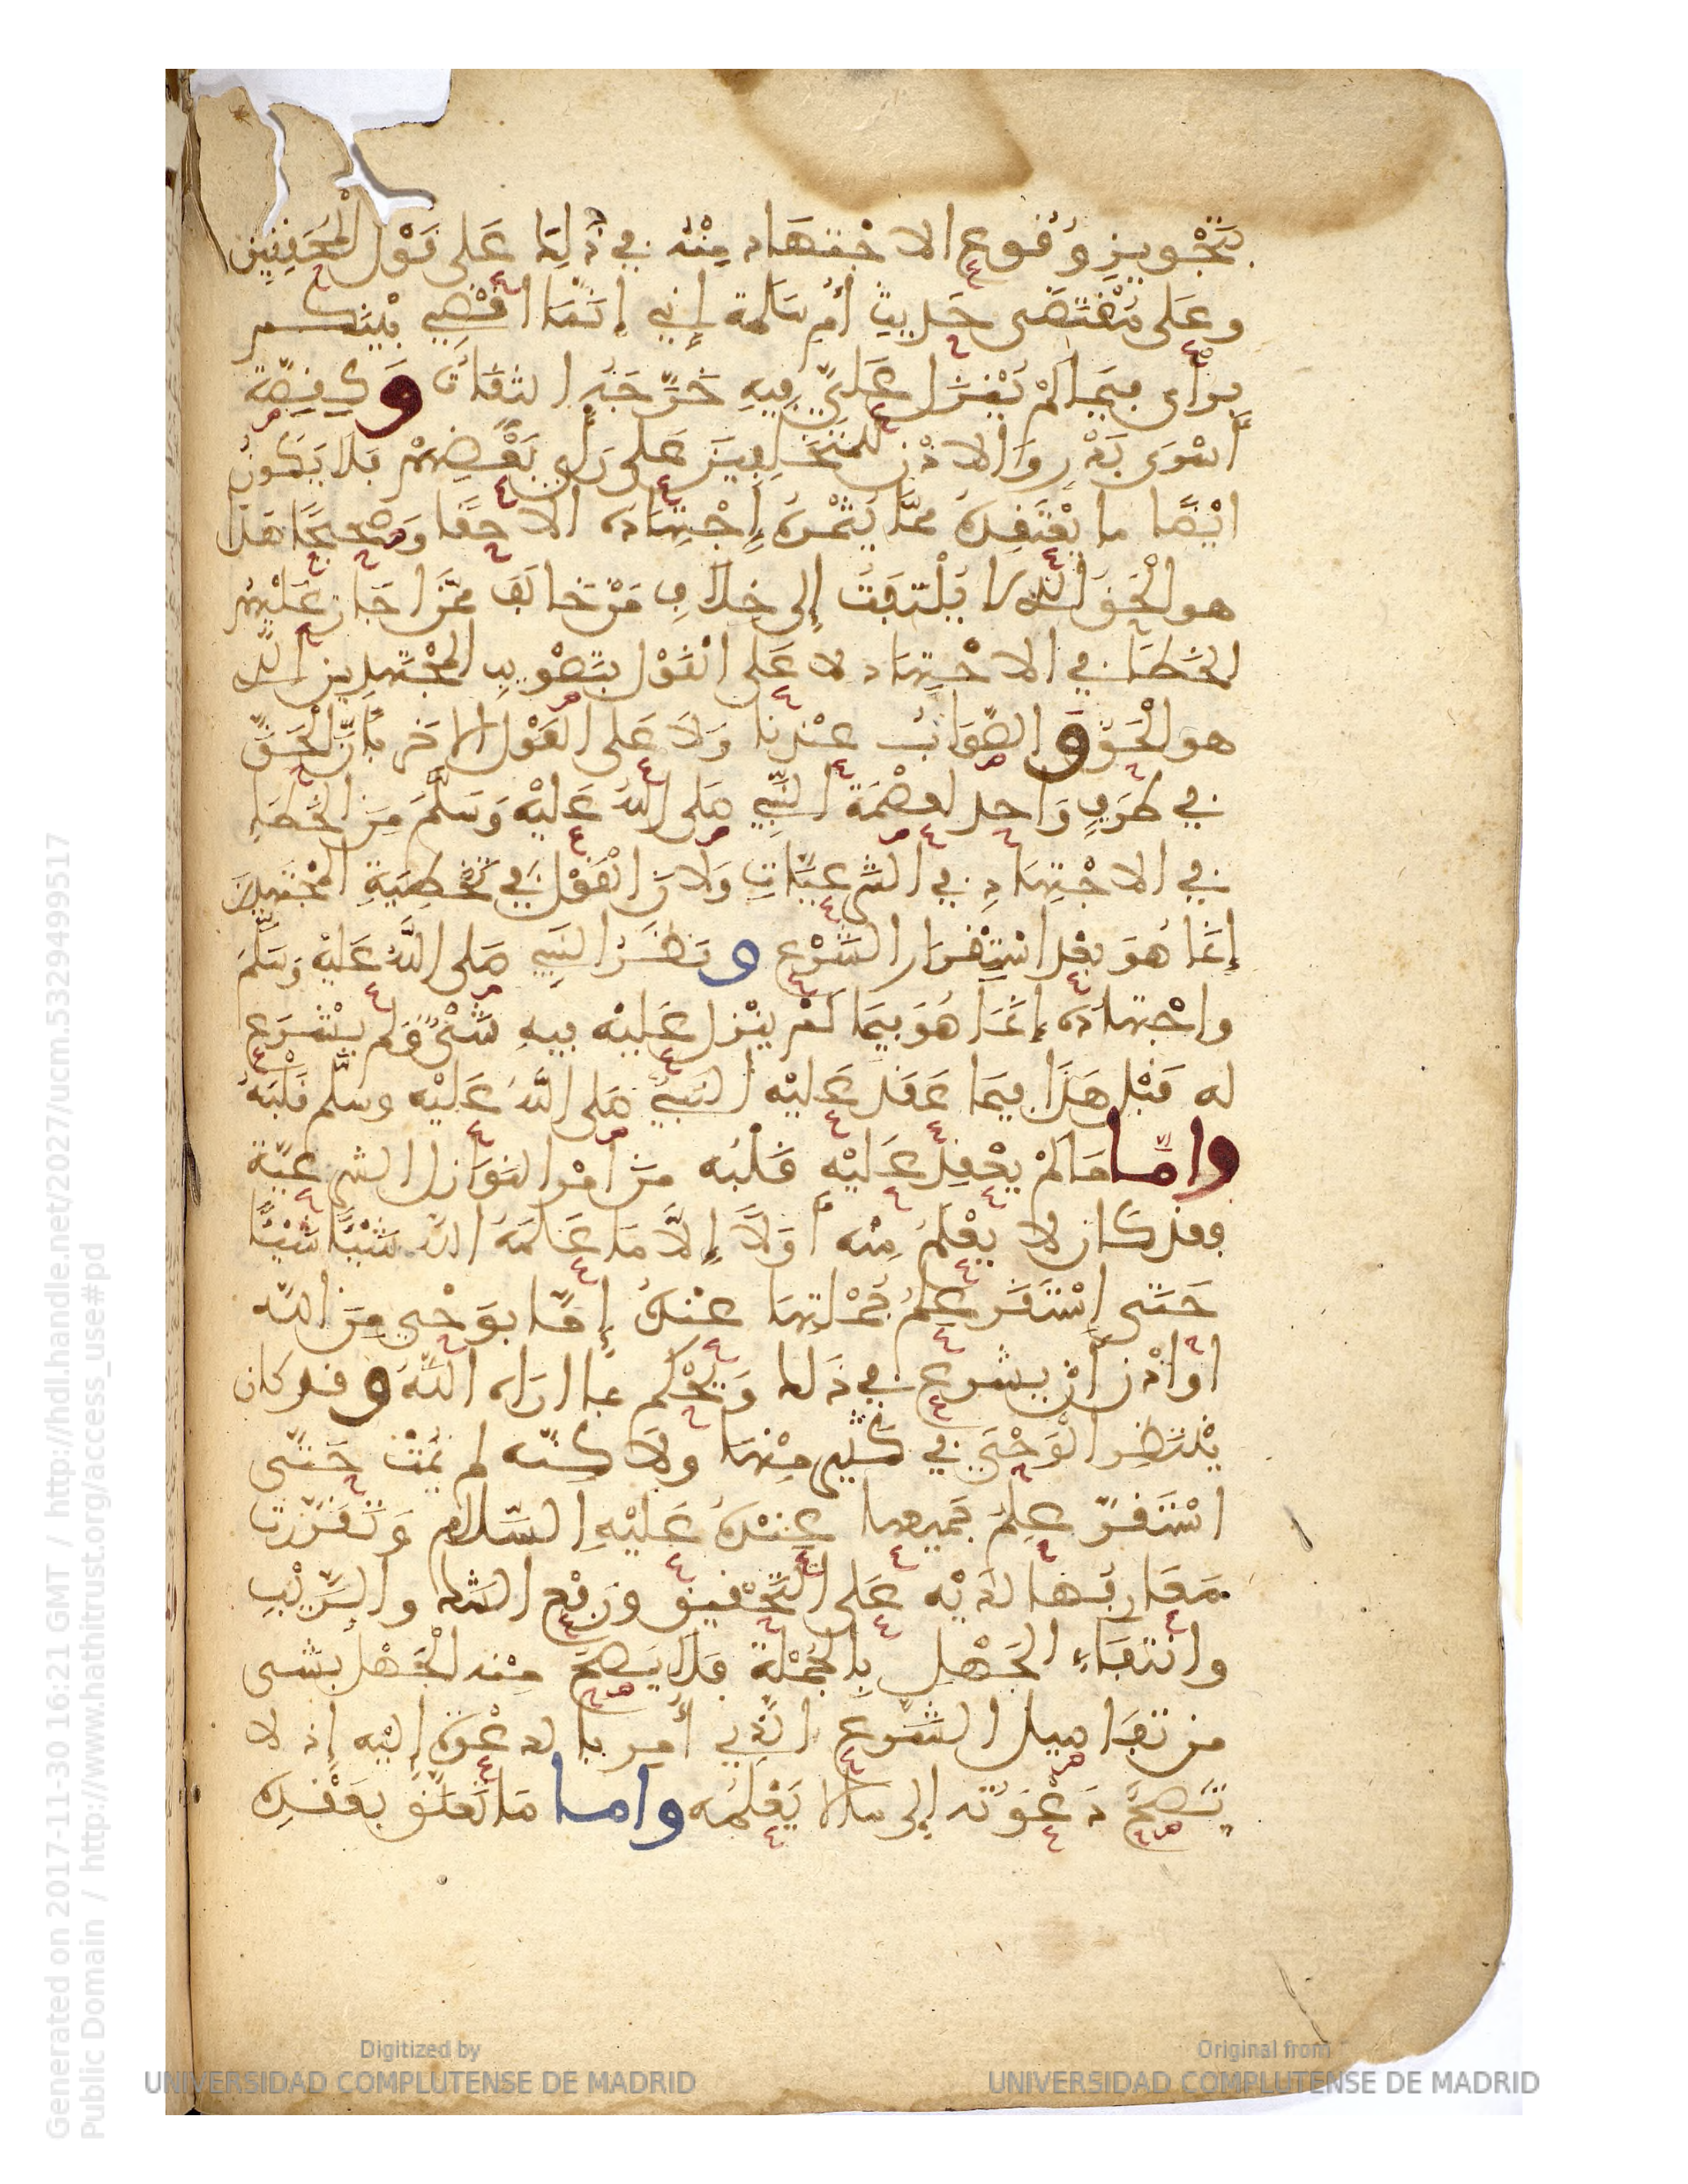 بتجويز وقوع الاجتهاد منه في ذلك على قول المحققين
وعلى مقتضى حديث أم سلمة إني إنما اقضي بينكم
برأى فيما لم ينزل علي فيه خرجه الثقات وكقصة
أسرى بدر والاذن للمتخلفين على رأي بعضهم فلا يكون
ايضا ما يعتقده مما يثمره إجتهاده الا حقا وصحيحا هذا
هو الحق الذى لا يلتفت إلى خلاف من خالف ممن اجاز عليه
الخطأ في الاجتهاد لا على القول بتصويب المجتهدين الذى
هو الحق والصواب عندنا ولا على القول الاخر بأن الحق
في طرف واحد لعصمة النبي صلى الله عليه وسلم من الخطإ
في الاجتهاد في الشرعيات ولان القول في تخطية المجتهدين
إنما هو بعد استقرار الشرع ونظر النبي صلى الله عليه وسلم
واجتهاده إنما هو فيما لم ينزل عليه فيه شىء ولم يشرع
له قبل هذا فيما عقد عليه النبي صلى الله عليه وسلم قلبه
واما ما لم يعقد عليه قلبه من امر النوازل الشرعية
فقد كان لا يعلم منه أولا إلا ما علمه الله شيئا شيئا
حتى إستقر علم جملتها عنده إما بوحي من الله
او اذن أن يشرع في ذلك ويحكم بما اراه الله وقد كان
ينتظر الوحي في كثير منها ولاكنه لم يمت حتى
استقر علم جميعها عنده عليه السلام وتقررت
معارفها لديه على التحقيق ورفع الشك والريب
وانتفاء الجهل بالجملة فلا يصح منه الجهل بشى
من تفاصيل الشرع الذي أمر بالدعوة إليه إذ لا
تصح دعوته إلى ما لا يعلمه واما ما تعلق بعقده
Generated on 2017-11-30 16:21 GMT / http://hdl.handle.net/2027/ucm.5329499517
Public Domain / http://www.hathitrust.org/access_use#pd
Digitized by
UNIVERSIDAD COMPLUTENSE DE MADRID
Original from
UNIVERSIDAD COMPLUTENSE DE MADRID